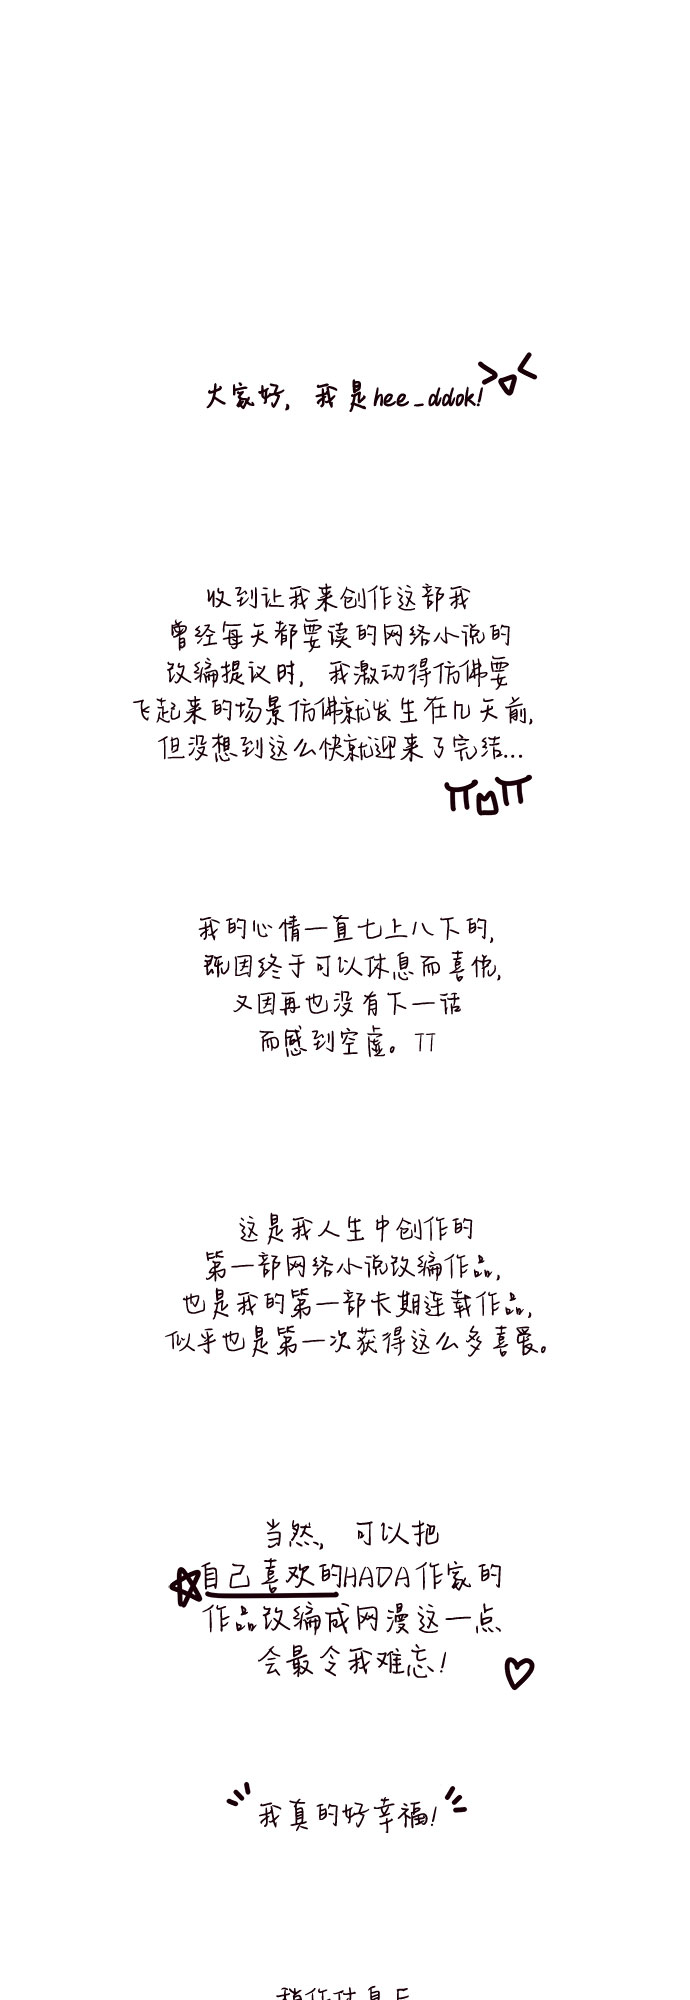 大家好, 我是hee_ddok!
收到让我来创作这部我
曾经每天都要读的网络小说的
改编提议时, 我激动得仿佛要
飞起来的场景仿佛就发生在几天前,
但没想到这么快就迎来了完结...
我的心情一直七上八下的,
既因终于可以休息而喜悦,
又因再也没有下一话
而感到空虚。TT
这是我人生中创作的
第一部网络小说改编作品,
也是我的第一部长期连载作品,
似乎也是第一次获得这么多喜爱。
当然, 可以把
自己喜欢的HADA作家的
作品改编成网漫这一点
会最令我难忘!
我真的好幸福!